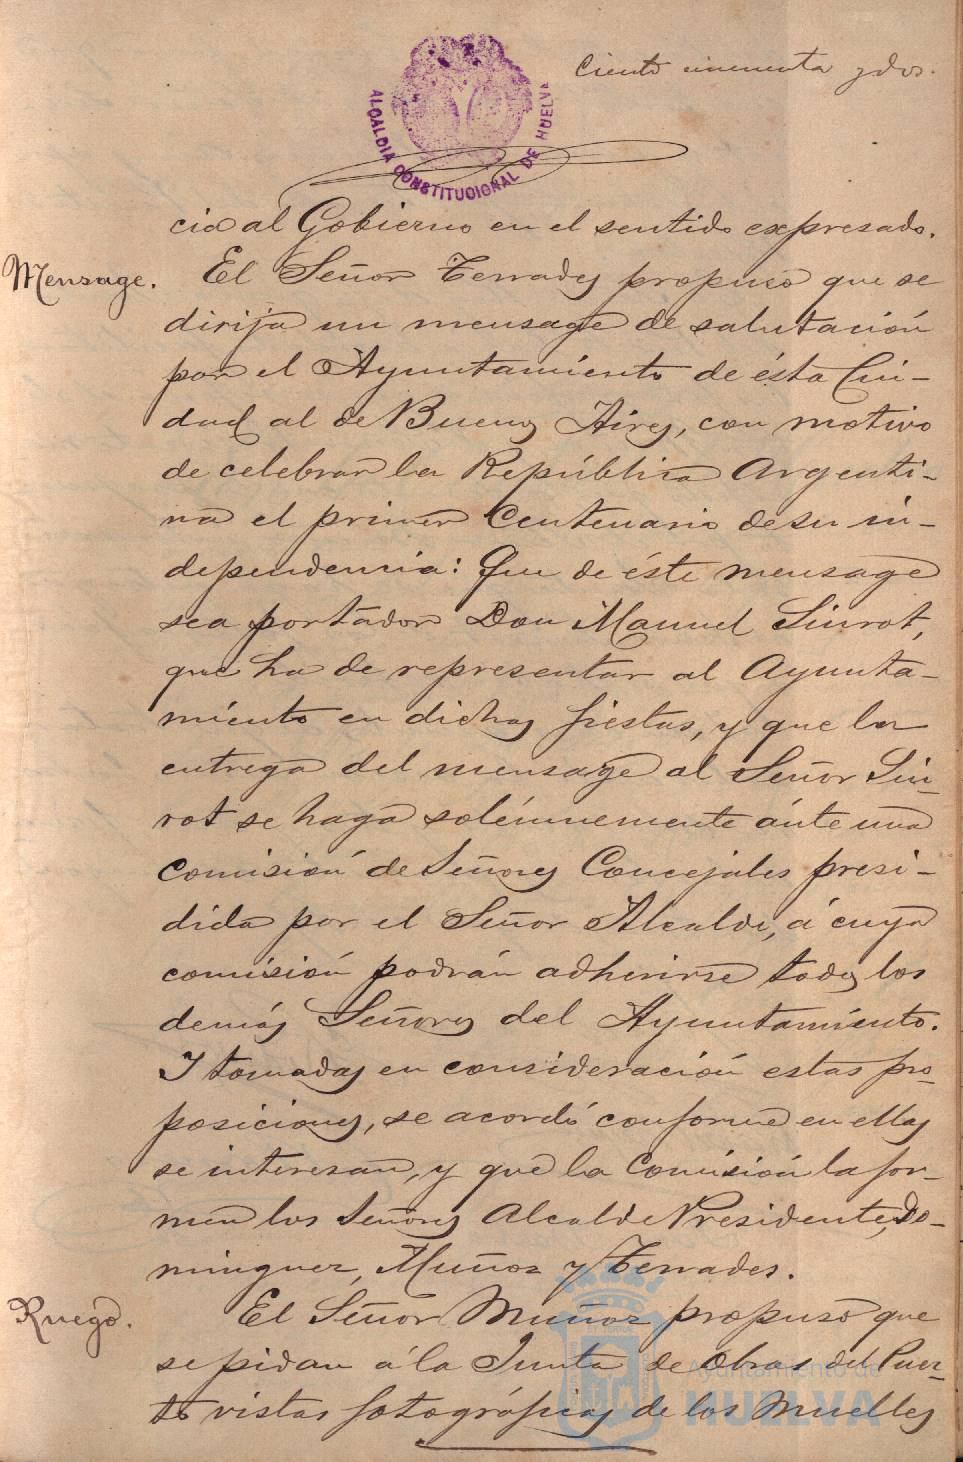 Ciento cincuenta y dos.
ALCALDIA CONSTITUCIONAL DE HUELVA
cia al Gobierno en el sentido expresado.
Mensage. El Señor Terrades propuso que se
dirija un mensage de salutación
por el Ayuntamiento de ésta Ciu-
dad al de Buenos Aires, con motivo
de celebrar la República Argenti-
na el primer Centenario de su in-
dependencia: Que de éste mensage
sea portador Don Manuel Siurot,
que ha de representar al Ayunta-
miento en dichas fiestas, y que la
entrega del mensage al Señor Siu-
rot se haga solémnemente ánte una
Comisión de Señores Concejales presi-
dida por el Señor Alcalde, á cuya
comisión podrán adherirse todos los
demás Señores del Ayuntamiento.
Y tomadas en consideración estas pro-
posiciones, se acordó conforme en ellas
se interesan, y que la Comisión la for-
men los Señores Alcalde Presidente, Do-
minguez, Muñoz y Terrades.
Ruego. El Señor Muñoz propuso que
se pidan á la Junta de Obras del Puer-
to vistas fotográficas de los Muelles
Ayuntamiento de
HUELVA